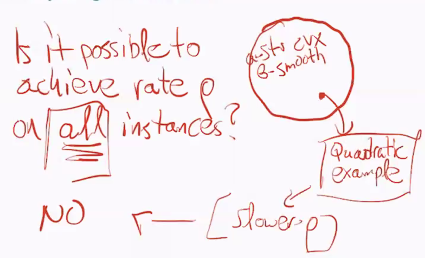 Is it possible to
achieve rate ρ
on all instances?
α-str cvx
β-smooth
Quadratic
example
[slower-ρ]
NO